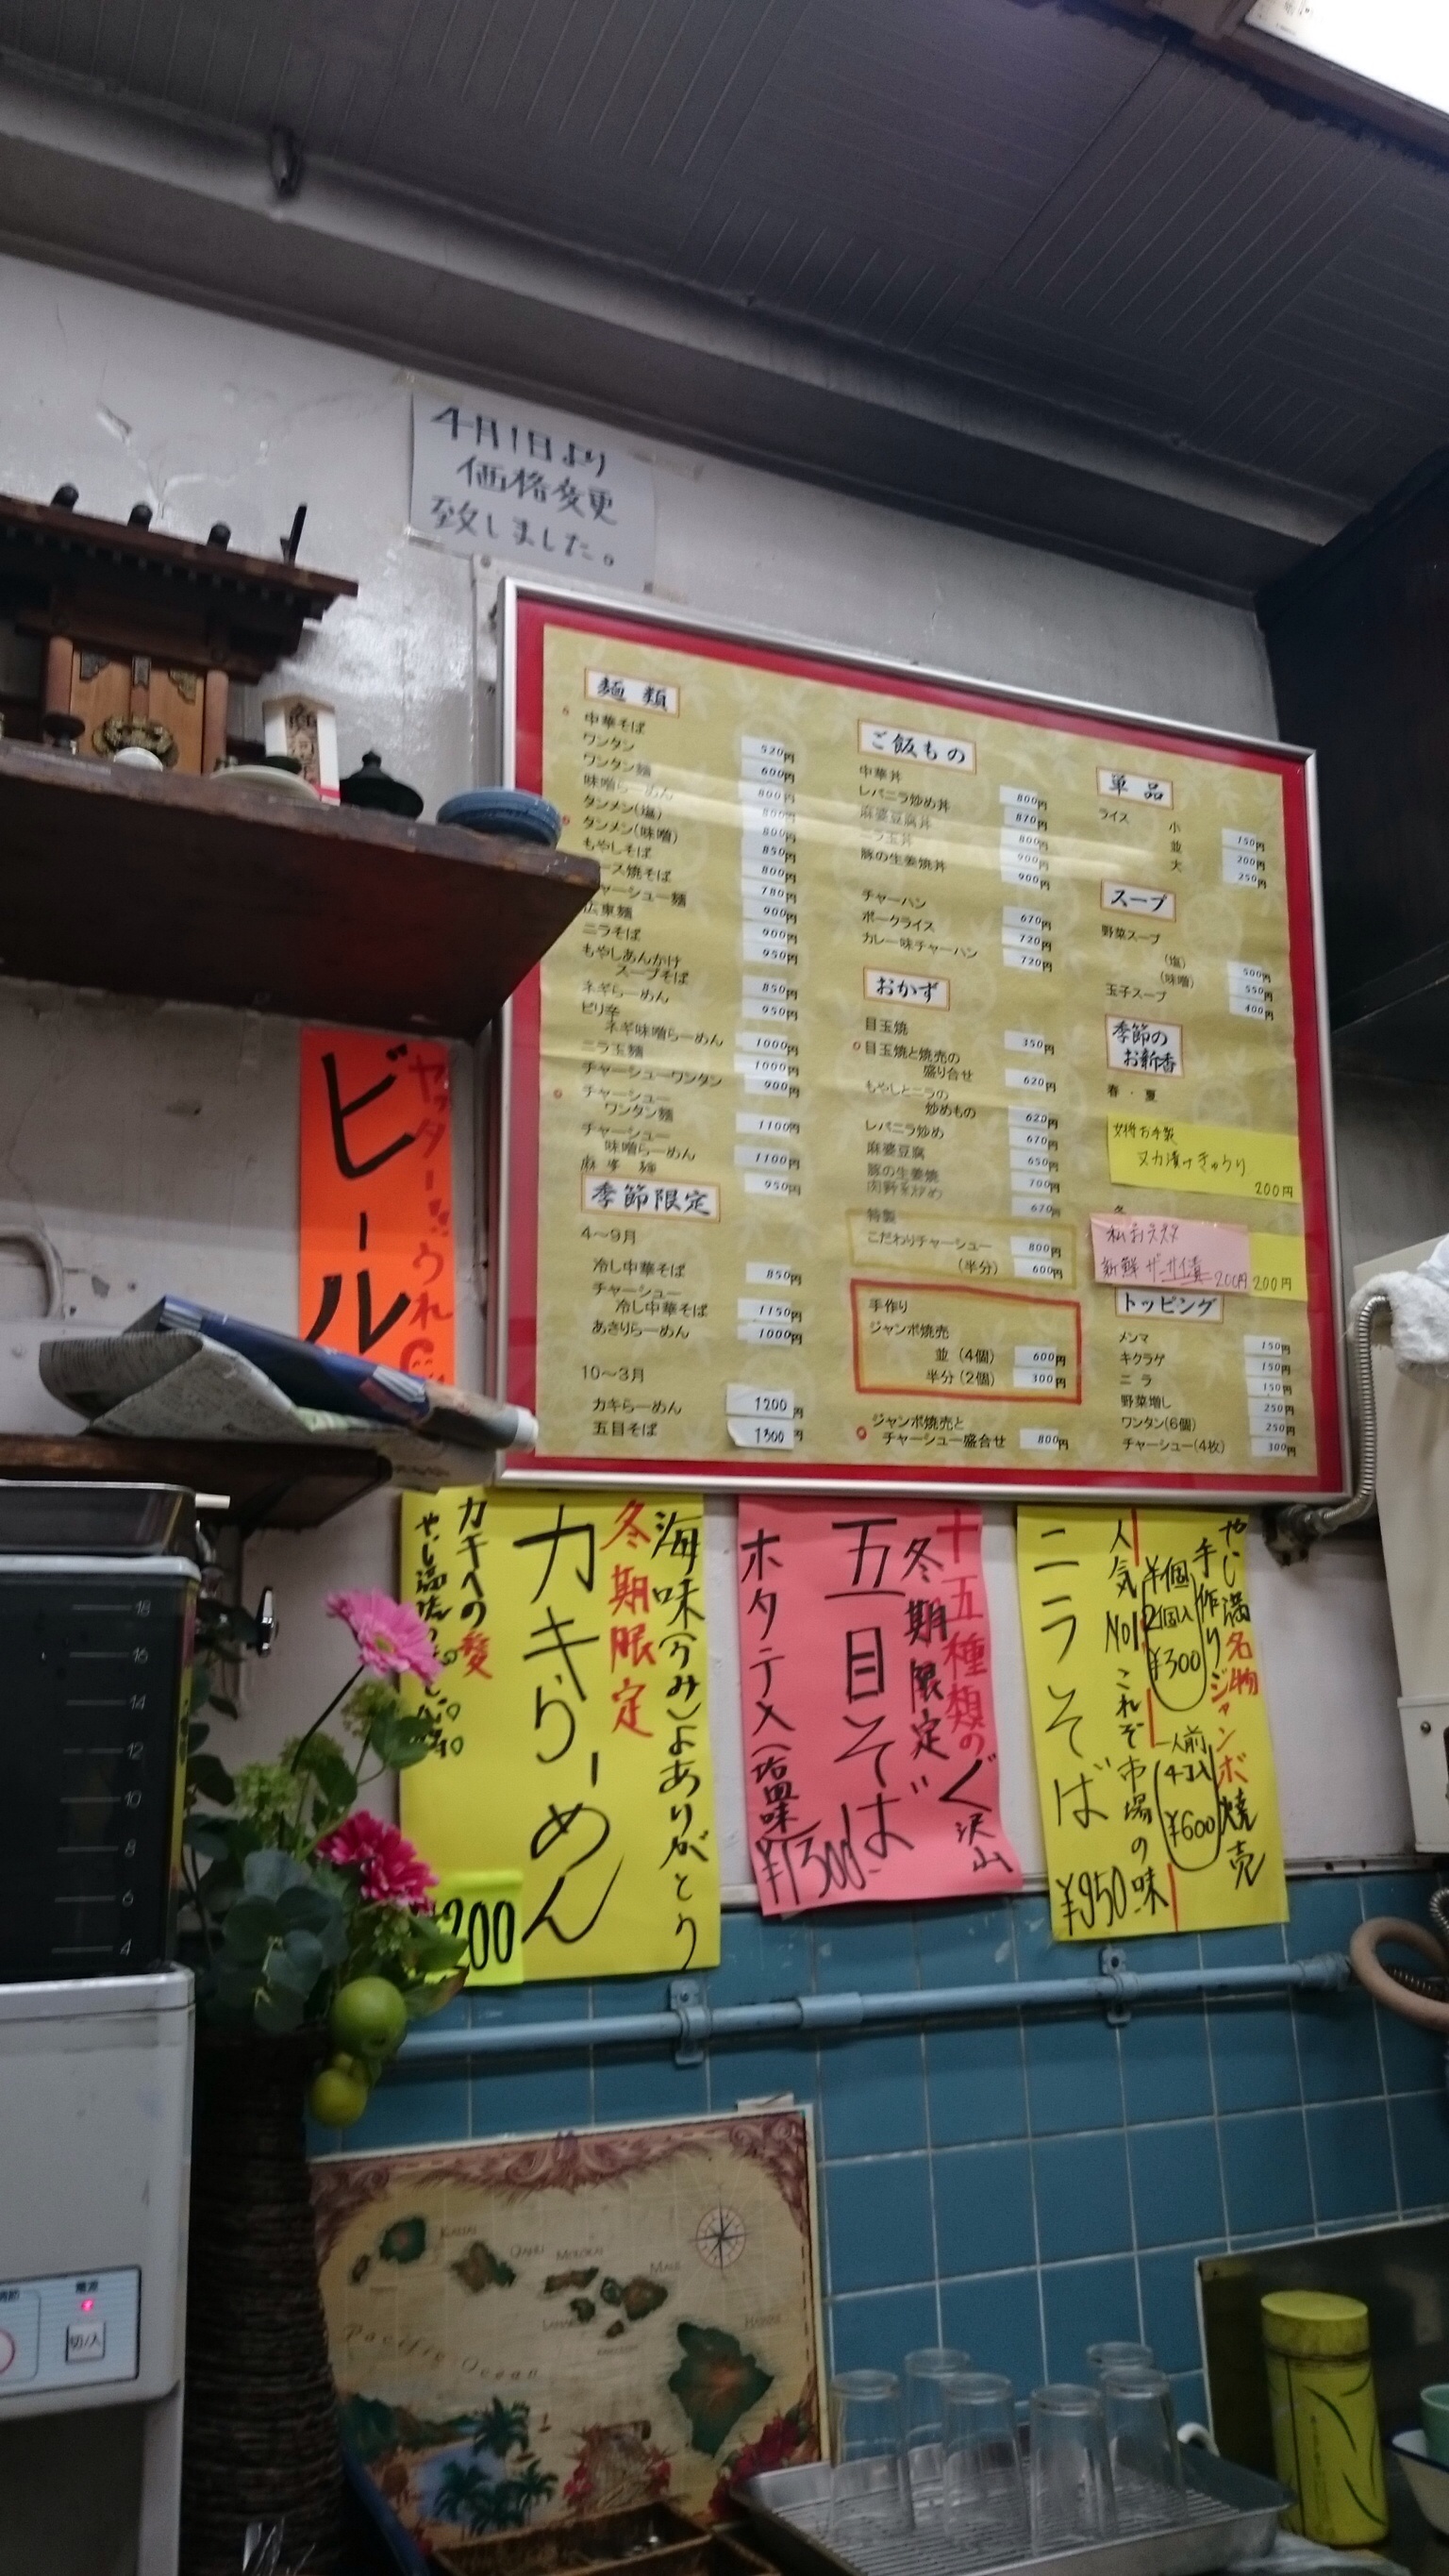 4月1日より
価格変更
致しました。
麺類
中華そば 520円
ワンタン 600円
ワンタン麺 800円
味噌らーめん 800円
タンメン(塩) 800円
タンメン(味噌) 850円
もやしそば 800円
ース焼そば 780円
ャーシュー麺 900円
広東麺 900円
ニラそば 950円
もやしあんかけ
スープそば 850円
ネギらーめん 950円
ピリ辛
ネギ味噌らーめん 1000円
ニラ玉麺 1000円
チャーシューワンタン 900円
チャーシュー
ワンタン麺 1100円
チャーシュー
味噌らーめん 1100円
麻婆麺 950円
季節限定
4〜9月
冷し中華そば 850円
チャーシュー
冷し中華そば 1150円
あさりらーめん 1000円
10〜3月
カキらーめん 1200円
五目そば 1300円
ご飯もの
中華丼 800円
レバニラ炒め丼 870円
麻婆豆腐丼 800円
ニラ玉丼 900円
豚の生姜焼丼 900円
チャーハン 670円
ポークライス 720円
カレー味チャーハン 720円
おかず
目玉焼 350円
目玉焼と焼売の
盛り合せ 620円
もやしとニラの
炒めもの 620円
レバニラ炒め 670円
麻婆豆腐 650円
豚の生姜焼 700円
肉野菜炒め 670円
特製
こだわりチャーシュー 800円
(半分) 600円
手作り
ジャンボ焼売
並(4個) 600円
半分(2個) 300円
ジャンボ焼売と
チャーシュー盛合せ 800円
単品
ライス 小 150円
並 200円
大 250円
スープ
野菜スープ
(塩) 500円
(味噌) 550円
玉子スープ 400円
季節の
お新香
春・夏
女将お手製
ヌカ漬けきゅうり
200円
冬
私おススメ
新鮮ザーサイ漬 200円
200円
トッピング
メンマ 150円
キクラゲ 150円
ニラ 150円
野菜増し 250円
ワンタン(6個) 250円
チャーシュー(4枚) 300円
ヤッター!!うれ
ビール
海味(うみ)よありがとう
冬期限定
カキらーめん
カキへの愛
やじ満
200
十五種類のぐ沢山
冬期限定
五目そば
ホタテ入(塩味)
¥1300-
やじ満名物ジャンボ焼売
手作り
半個
2個入
¥300
一人前
4コ入
¥600
人気No1これぞ市場の味
ニラそば
¥950-
18
16
14
12
10
8
6
4
電源
切/入
KAUAI
OAHU
MOLOKAI
MAUI
LANAI
HAWAII
Pacific Ocean